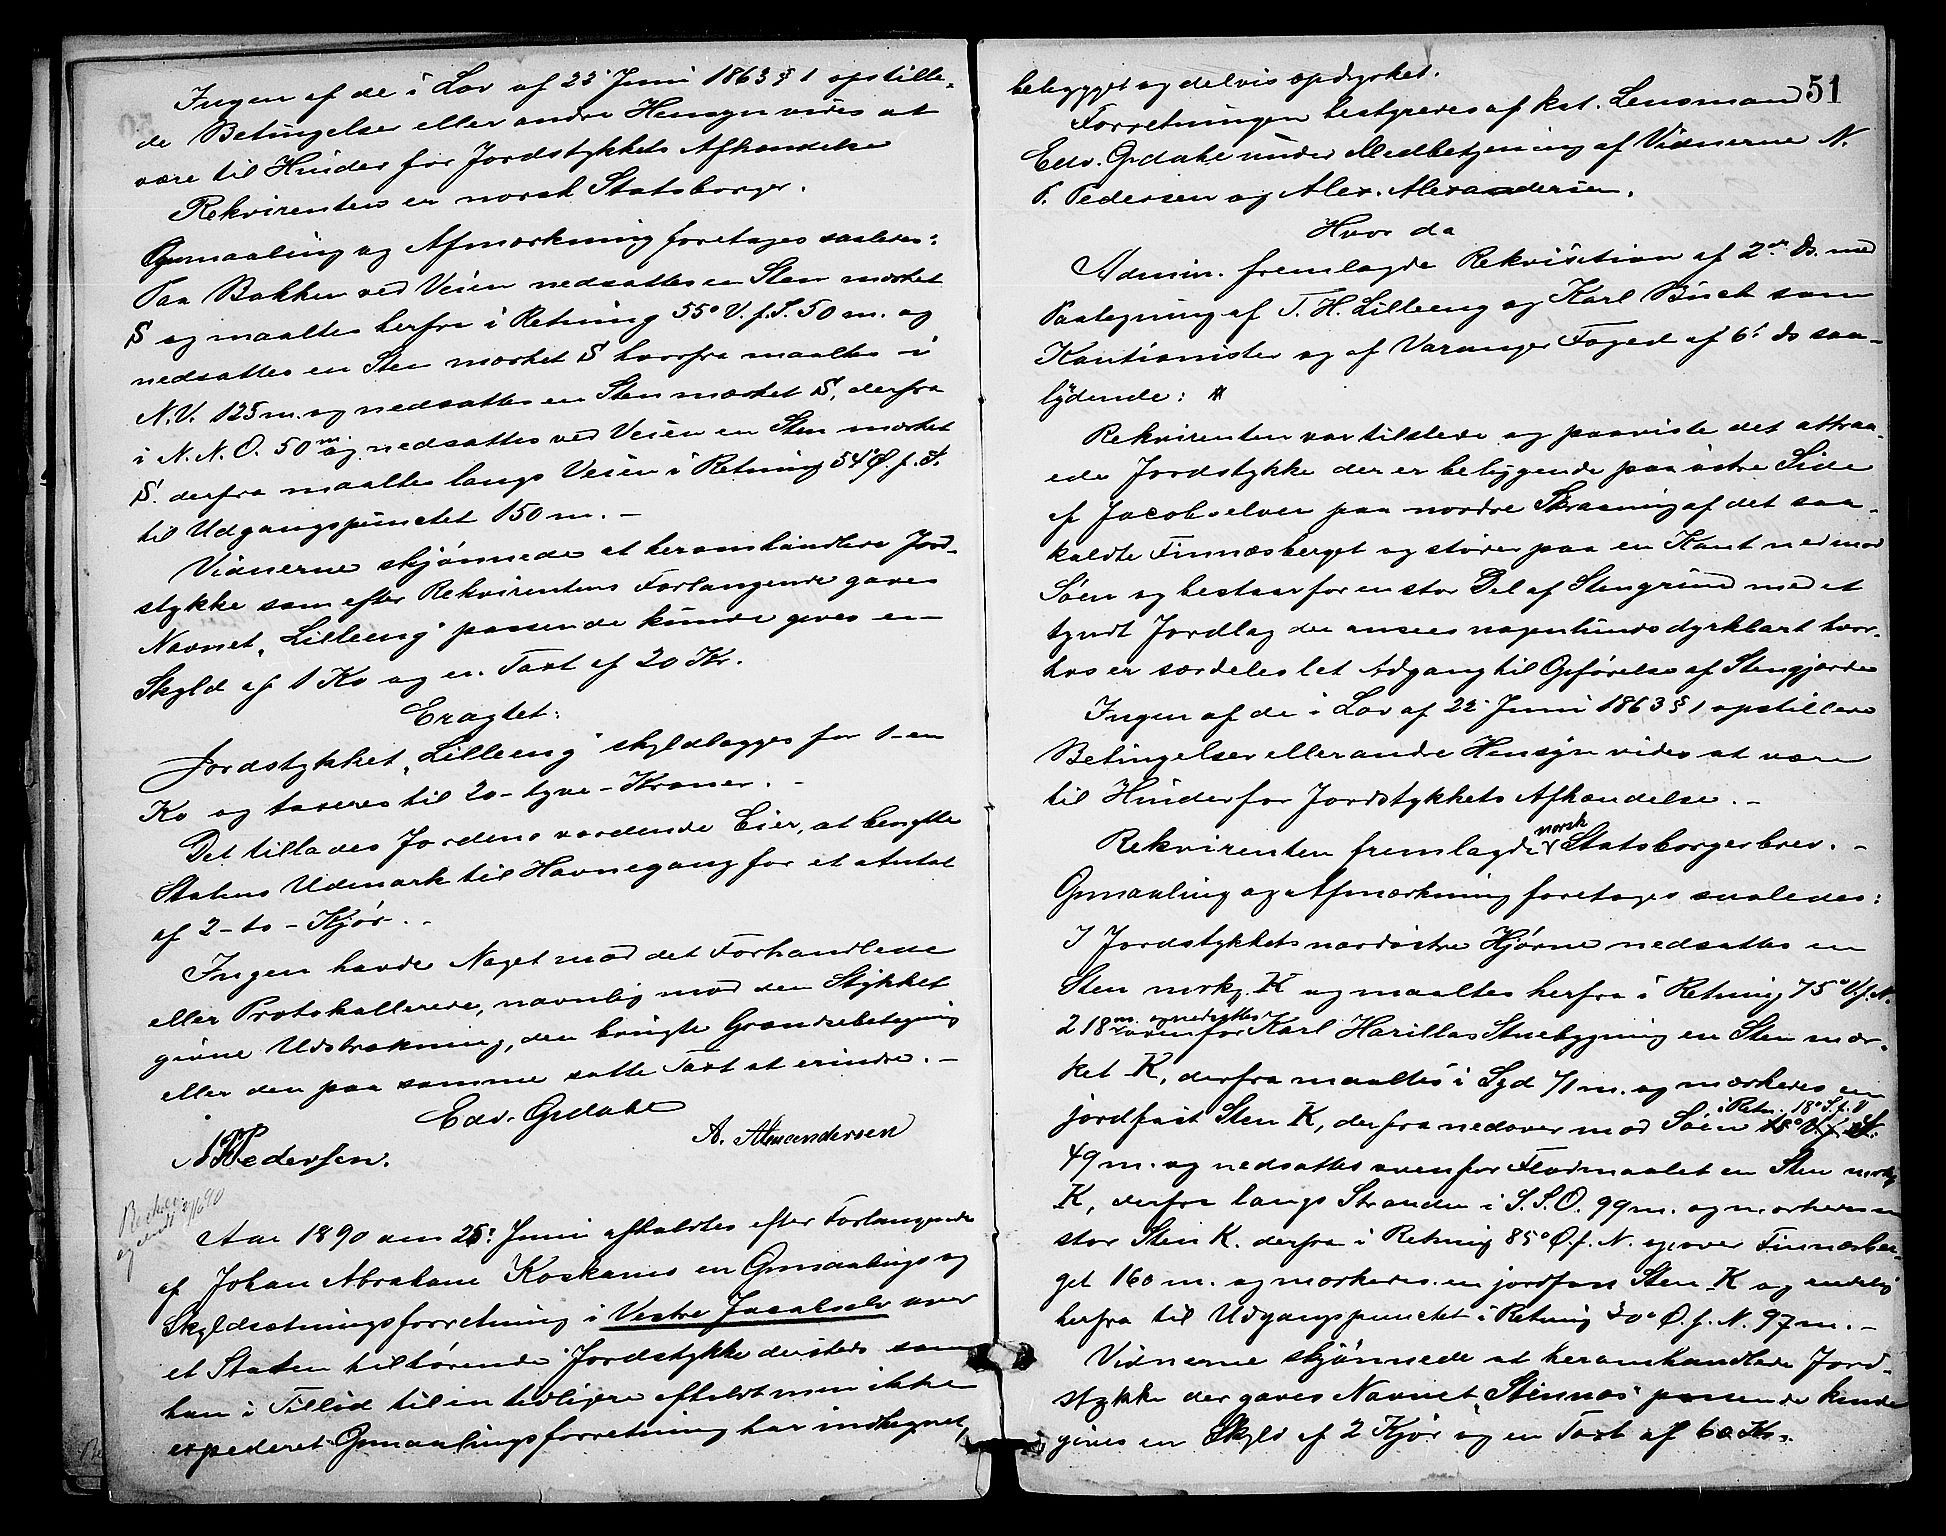 Ingen af de i Lov af 22' Juni 1863 § 1 opstille-
de Betingelser eller andre Hensyn vides at
være til Hinder for Jordstykkets Afhændelse
Rekvirenten er norsk Statsborger.
Opmaaling og Afmærkning foretages saaledes:
Paa Bakken ved Veien nedsattes en Sten mærket
S og maaltes herfra i Retning 55° V. f. S. 50 m. og
nedsattes en Sten mærket S hvorfra maaltes i
N.V. 125 m. og nedsattes en Sten mærket S, derfra
i N.N.O. 50 m og nedsattes ved Veien en Sten mærket
S. derfra maaltes langs Veien i Retning 54° Ø. f. S.
til Udgangspunctet 150 m. –
Vidnerne skjønnede at heromhandlede Jord-
stykke som efter Rekvirentens Forlangende gaves
Navnet „Lilleeng" passende kunde gives en
Skyld af 1 Ko og en Taxt af 20 Kr.
Eragtet:
Jordstykket „Lilleeng" skyldlægges for 1–en
Ko og taxeres til 20–tyve–Kroner. –
Det tillades Jordens vordende Eier, at benytte
Statens Udmark til Havnegang for et Antal
af 2–to–Kjør. –
Ingen havde Noget mod det Forhandlede
eller Protokollerede, navnlig mod den Stykket
givne Udstrækning, den brugte Grændsebetegning
eller den paa samme satte Taxt at erindre. –
Edv. Grdahl
A. Alexandersen
N P Pedersen.
og sendt 2/7 90
Aar 1890 den 25' Juni afholdtes efter Forlangende
af Johan Abraham Koskamo en Opmaalings og
Skyldsætningsforretning i Vestre Jacobselv over
et Staten tilhørende Jordstykke dersteds som
han i Tillid til en tidligere afholdt men ikke
expederet Opmaalingsforretning har indhegnet,
51
bebygget og delvis opdyrket.
Forretningen bestyredes af kst. Lensmand
Edv. Grdahl under Medbetjening af Vidnerne N.
P. Pedersen og Alex. Alexandersen.
Hvor da
Admin. fremlagde Rekvisition af 2den ds. med
Paategning af T. H. Lilleeng og Karl Buch som
Kautionister og af Varanger Foged af 6' ds saa-
lydende: #
Rekvirenten var tilstede og paaviste det attraa-
ede Jordstykke der er beliggende paa østre Side
af Jacobselven paa nordre Skraaning af det saa-
kaldte Finnæsberget og støder paa en Kant ned mod
Søen og bestaar for en stor Del af Stengrund med et
tyndt Jordlag der ansees nogenlunde dyrkbart hvor-
hos er særdeles let Adgang til Opførelse af Stengjærde
Ingen af de i Lov af 22' Juni 1863 § 1 opstillede
Betingelser eller andre Hensyn vides at være
til Hinder for Jordstykkets Afhændelse. –
Rekvirenten fremlagde norsk Statsborgerbrev. –
Opmaaling og Afmærkning foretages saaledes:
I Jordstykkets nordøstre Hjørne nedsattes en
Sten mrkt. K og maaltes herfra i Retning 75° V. f. N.
218 m. og nedsattes ovenfor Karl Harillas Stuebygning en Sten mær-
ket K, derfra maaltes i Syd 71 m. og mærkedes en
jordfast Sten K, derfra nedover mod Søen i Retn. 18° S. f. V
49 m. og nedsattes ovenfor Flodmaalet en Sten mrkt
K, derfra langs Stranden i S.S.O. 99 m. og mærkedes en
stor Sten K. derfra i Retning 85° Ø. f. N. opover Finnæsber-
get 160 m. og mærkedes en jordfast Sten K og endelig
herfra til Udgangspunctet i Retning 30° Ø. f. N. 97 m. –
Vidnerne skjønnede at heromhandlede Jord-
stykke der gaves Navnet „Stennæs" passende kunde
gives en Skyld af 2 Kjør og en Taxt af 60 Kr.